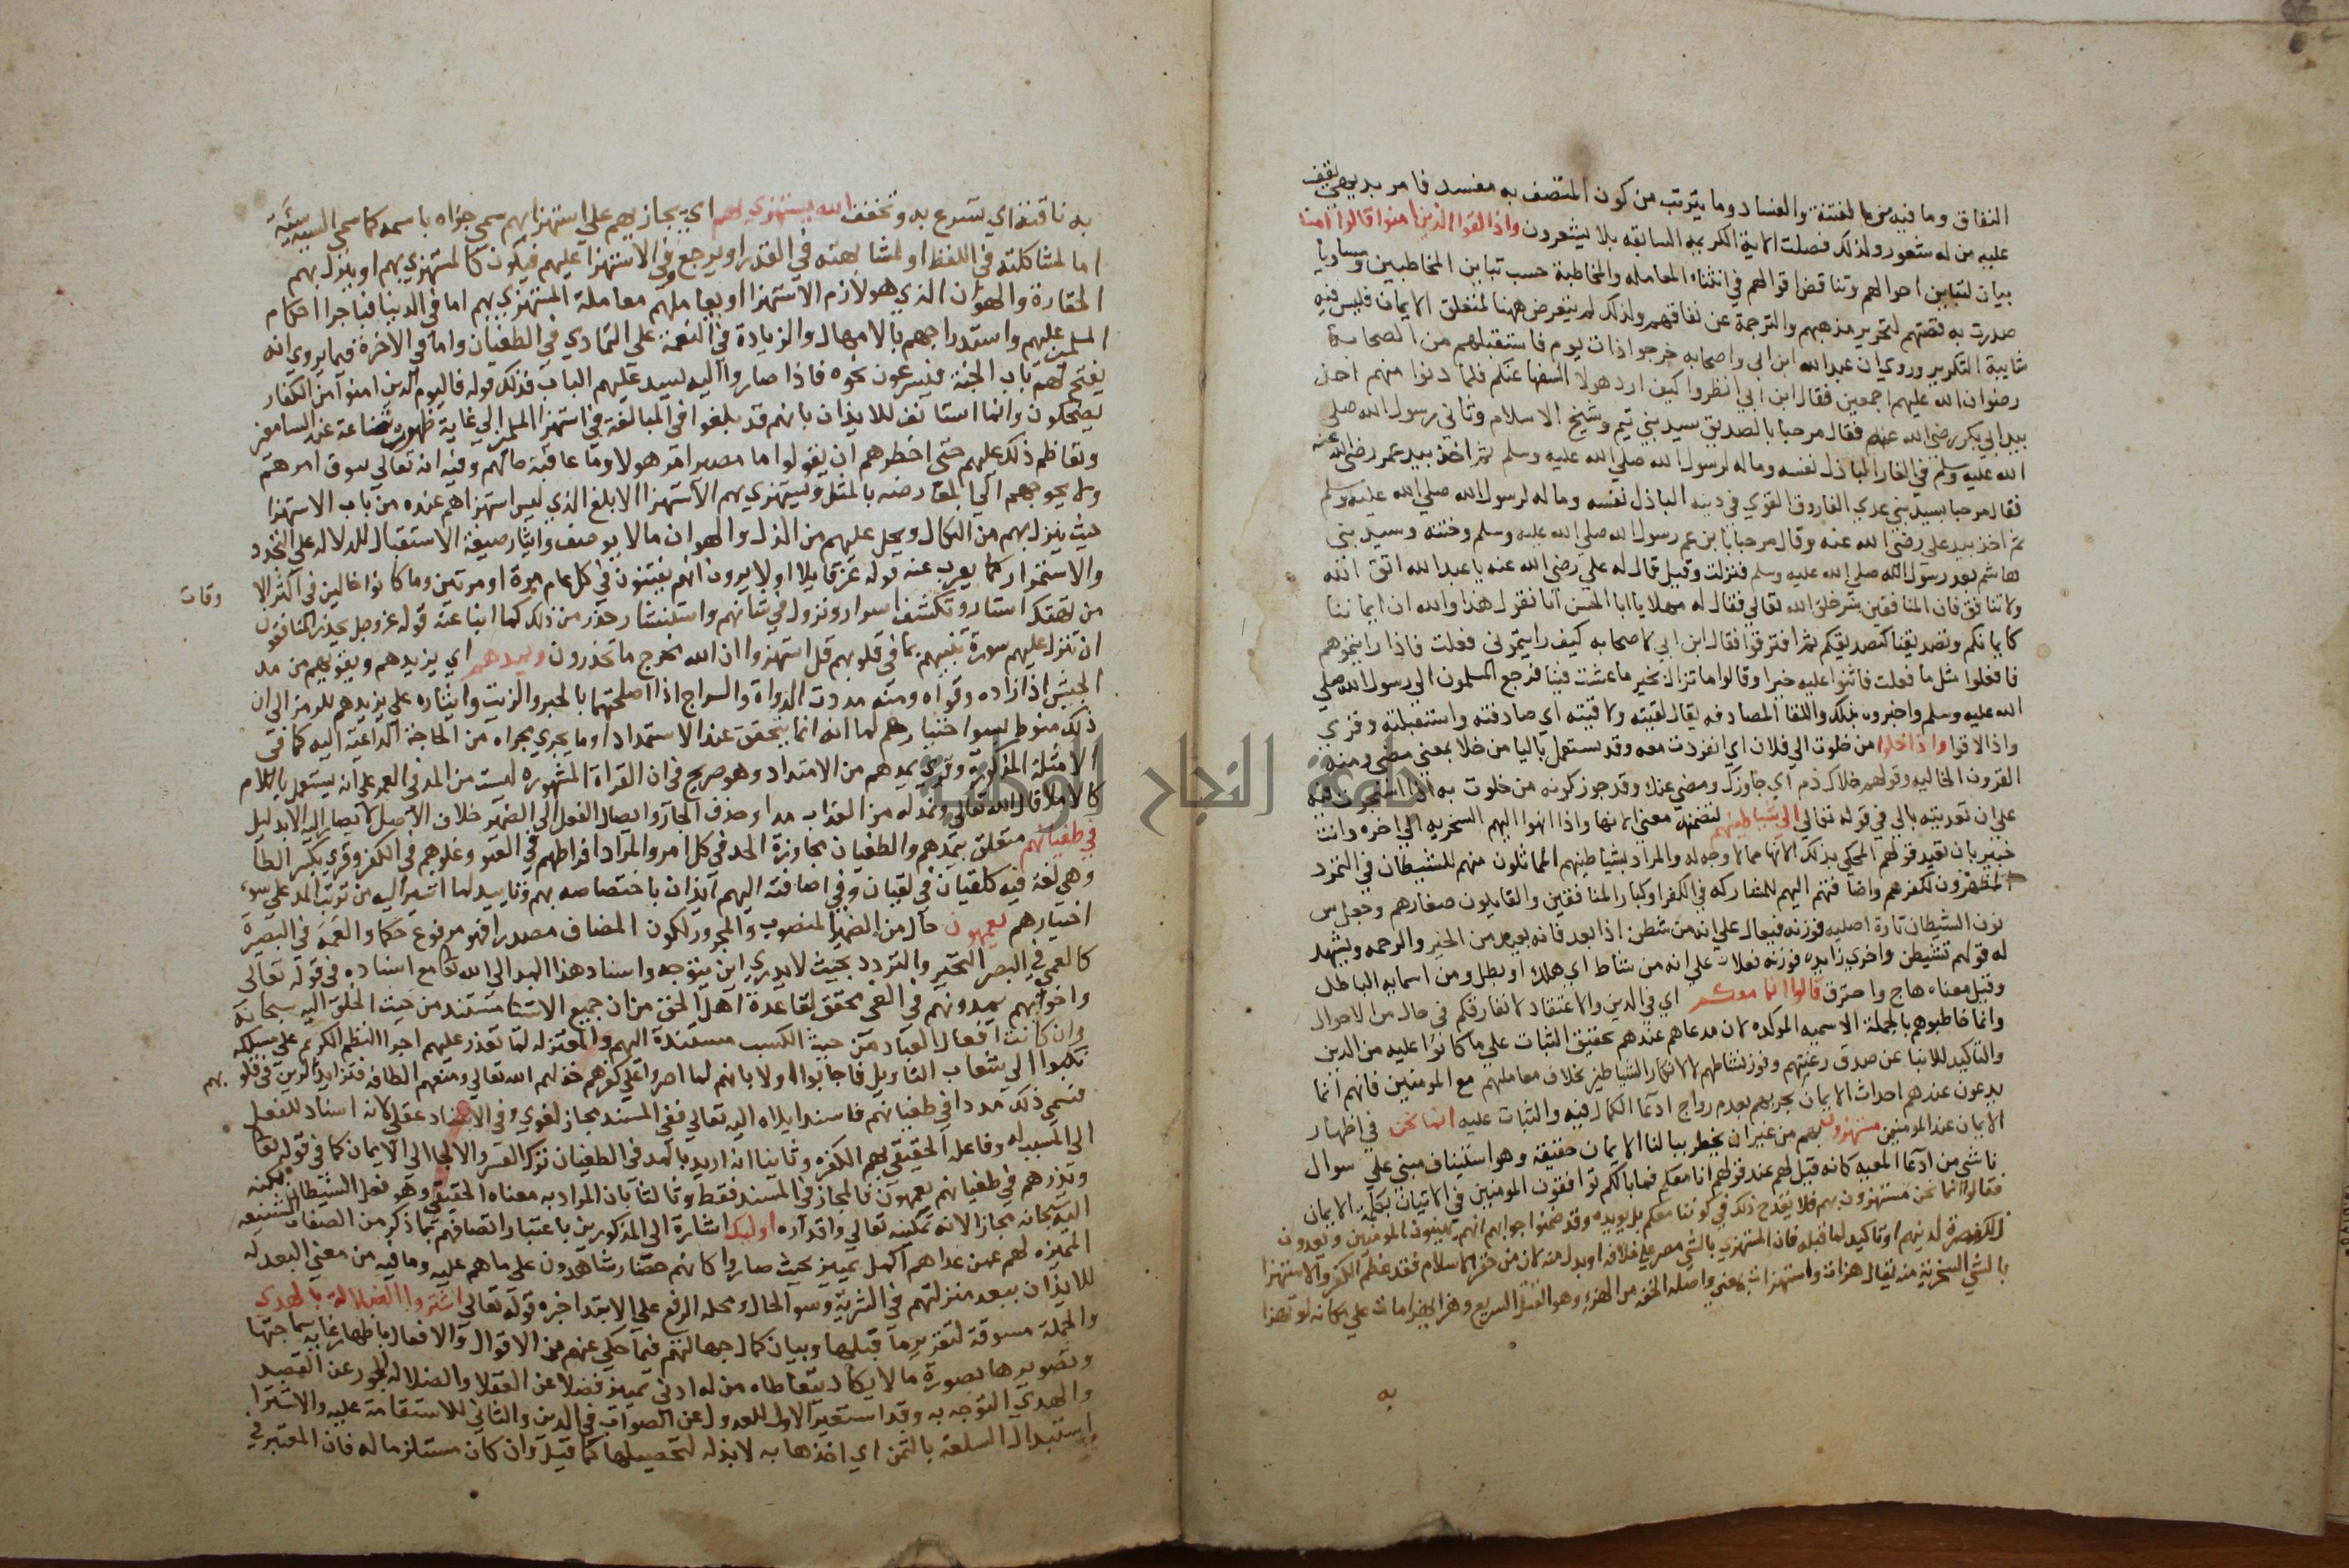 النفاق وما فيه من الفتنة والفساد وما يترتب من كون المتصف به مفسد فامر بديهي يقف
عليه من له شعور ولذلك فصلت الاية الكريمه السابقه بلا يشعرون واذا لقوا الذين امنوا قالوا امنا
بيان لتباين احوالهم وتناقض اقوالهم في اثناء المعامله والمخاطبة حسب تباين المخاطبين ومساق ما
صدرت به قصتهم لتحرير مذهبهم والترجمة عن نفاقهم ولذلك لم يتعرض ههنا لمتعلق الايمان فليس فيه
شايبة التكرير وروي ان عبد الله ابن ابي واصحابه خرجوا ذات يوم فاستقبلهم من الصحابة
رضوان الله عليهم اجمعين فقال ابن ابي انظروا كيف ارد هولا السفها عنكم فلما دنوا منهم اخذ
بيد ابي بكر رضي الله عنه فقال مرحبا بالصديق سيد بني تيم وشيخ الاسلام وثاني رسول الله صلى
الله عليه وسلم في الغار الباذل نفسه وماله لرسول الله صلي الله عليه وسلم ثم اخذ بيد عمر رضي الله عنه
فقال مرحبا بسيد بني عدي الفاروق القوي في دينه الباذل نفسه وماله لرسول الله صلي الله عليه وسلم
ثم اخذ بيد علي رضي الله عنه وقال مرحبا بابن عم رسول الله صلي الله عليه وسلم وختنه وسيد بني
هاشم بعد رسول الله صلي الله عليه وسلم فنزلت وقيل قال له علي رضي الله عنه يا عبد الله اتق الله
ولا تنافق فان المنافقين شر خلق الله تعالي فقال له مهلا يا ابا الحسن انا نقول هذا والله ان ايماننا
كايمانكم وتصديقنا كتصديقكم ثم افترقوا فقال ابن ابي لاصحابه كيف رايتموني فعلت فاذا رايتموهم
فافعلوا مثل ما فعلت فاثنوا عليه خيرا وقالوا ما تزال بخير ما عشت فينا فرجع المسلمون الي رسول الله صلي
الله عليه وسلم واخبروه بذلك واللقا المصادفه يقال لقيته ولاقيته اي صادفته واستقبلته وقري
واذا لاقوا واذا خلوا من خلوت الي فلان اي انفردت معه وقد يستعمل بالبا من خلا بمعني مضي ومنه
القرون الخاليه وقولهم خلاك ذم اي جاوزك ومضي عنك وقد جوز كونه من خلوت به اذا سخرت منه
علي ان تعديته بالي في قوله تعالي الي شياطينهم لتضمنه معني الانها واذا انهوا اليهم السخريه الي اخره وانت
خبير بان تقييد قولهم المحكي بذلك الانها مما لا وجه له والمراد بشياطينهم المماثلون منهم للشيطان في التمرد
المظهرون لكفرهم واضافتهم اليهم للمشاركه في الكفر او كبار المنافقين والقايلون صغارهم وجعل س
نون الشيطان تارة اصليه فوزنه فيعال علي انه من شطن اذا بعد فانه بعيد من الخير والرحمه ويشهد
له قولهم تشيطن واخري زايده فوزنه فعلان علي انه من شاط اي هلك او بطل ومن اسمايه الباطل
وقيل معناه هاج واحترق قالوا انا معكم اي في الدين والاعتقاد لا نفارقكم في حال من الاحوال
وانما خاطبوهم بالجملة الاسميه الموكده لان مدعاهم عندهم تحقيق الثبات علي ما كانوا عليه من الدين
والتاكيد للانبا عن صدق رغبتهم وفور نشاطهم لا لانكار الشياطين بخلاف معاملتهم مع المومنين فانهم انما
يدعون عندهم احداث الايمان بجزمهم بعدم رواج ادعا الكمال فيه والثبات عليه انما نحن في اظهار
الايمان عند المومنين مستهزون بهم من غير ان يخطر ببالنا الايمان حقيقة وهو استيناف مبني علي سوال
ناشي من ادعا المعيه كانه قيل لهم عند قولهم انا معكم فما بالكم توافقون المومنين في الاتيان بكلمة الايمان
فقالوا انما نحن مستهزون بهم فلا يقدح ذلك في كوننا معكم بل يويده وقد ضمنوا جوابهم انهم يهينون المومنين ويعدون
ذلك نصرة لدينهم او تاكيد لما قبله فان المستهزي بالشي مصر علي خلافه او بدل منه لان من حقر الاسلام فقد عظم الكفر والاستهزا
بالشي السخرية منه يقال هزات واستهزات بمعني واصله الخفه من الهزء وهو القتل السريع وهزا يهزا مات علي مكانه لو تهزا
به
به ناقته اي تسرع به وتخفف الله يستهزي بهم اي يجازيهم علي استهزايهم سمي جزاه باسمه كما سمي السيئة سيئة
اما لمشاكلته في اللفظ او لمشابهته في القدر او يرجع وفي الاستهزا عليهم فيكون كالمستهزي بهم او ينزل بهم
الحقارة والهوان الذي هو لازم الاستهزا او يعاملهم معاملة المستهزي بهم اما في الدنيا فباجرا احكام
المسلمين عليهم واستدراجهم بالامهال والزيادة في النعمة علي التمادي في الطغيان واما في الاخرة فيما يروي انه
يفتح لهم باب الجنة فيسرعون نحوه فاذا صاروا اليه يسد عليهم الباب فذلك قوله فاليوم الذين امنوا من الكفار
يضحكون وانما استانف للايذان بانهم قد بلغوا في المبالغة في استهزا المسلمين الي غاية ظهور شناعته عند السامعين
وتعاظم ذلك عليهم حتي اضطرهم ان يقولوا ما مصير امر هولا وما عاقبة حالهم وفيه انه تعالي سوف امرهم
ولم يحوجهم الي المعارضه بالمثل ويستهزي بهم الاستهزا الابلغ الذي ليس استهزاهم عنده من باب الاستهزا
حيث ينزل بهم من النكال ويحل عليهم من الذل والهوان مالا يوصف وايثار صيغة الاستقبال للدلالة علي التجدد
والاستمرار كما يعرب عنه قوله عز قايلا اولا يرون انهم يفتنون في كل عام مرة او مرتين وما كانوا خالين في اكثر الا وقات
من تهتك استار وتكشف اسرار ونزول في شانهم واستشعار حذر من ذلك كما انبا عنه قوله عز وجل يحذر المنافقون
ان تنزل عليهم سورة تنبيهم بما في قلوبهم قل استهزوا ان الله مخرج ما تحذرون ويمدهم اي يزيدهم ويقويهم من مد
الجيش اذا زاده وقواه ومنه مددت الدواة والسراج اذا اصلحتهما بالحبر والزيت وايثاره علي يزيدهم للرمز الي ان
ذلك منوط بسوا ختيارهم لما انه انما يتحقق عند الاستمداد او ما يجري مجراه من الحاجة الداعية اليه كما في
الامثلة المذكورة وقري يمدهم من الامتداد وهو صريح في ان القراة المشهوره ليست من المد في العمر علي انه يستعمل باللام
كالاملا قال الله تعالي ونمد له من العذاب مدا وحذف الجار وايصال الفعل الي الضمير خلاف الاصل لا يصار اليه الا بدليل
في طغيانهم متعلق بيمدهم والطغيان مجاوزة الحد في كل امر والمراد افراطهم في العتو وغلوهم في الكفر وقري بكسر الطا
وهي لغة فيه كلقيان في لقيان وفي اضافته اليهم ايذان باختصاصه بهم وتاييد لما اشير اليه من ترتب المد علي سوء
اختيارهم يعمهون حال من الضمير المنصوب والمجرور لكون المضاف مصدرا فهو مرفوع حكما والعمه في البصيرة
كالعمي في البصر التحير والتردد بحيث لا يدري اين يتوجه واسناد هذا المد الي الله تعالي مع اسناده في قوله تعالي
واخوانهم يمدونهم في الغي محقق لقاعدة اهل الحق من ان جميع الاشيا مستند من حيث الخلق اليه سبحانه
وان كانت افعال العباد من حيث الكسب مستندة اليهم والمعتزله لما تعذر عليهم اجرا النظم الكريم علي مسلكه
نكبوا الي شعاب التاويل فاجابوا اولا بانهم لما اصروا علي كفرهم خذلهم الله تعالي ومنعهم الطافه فتزايد الرين في قلو بهم
فسمي ذلك مددا في طغيانهم فاسند ايلاه اليه تعالي ففي المسند مجاز لغوي وفي الاسناد عقلي لانه اسناد للفعل
الي المسبب له وفاعله الحقيقي هم الكفره وثانيا انه اريد بالمد في الطغيان ترك القسر والالجا الي الايمان كما في قوله تعالي
ونذرهم في طغيانهم يعمهون فالمجاز في المسند فقط وثالثا بان المراد به معناه الحقيقي وهو فعل الشيطان لكنه
اليه سبحانه مجازا لانه تمكينه تعالي واقداره اوليك اشارة الي المذكورين باعتبار اتصافهم بما ذكر من الصفات الشنيعه
المميزه لهم عمن عداهم اكمل تمييز بحيث صاروا كانهم حضار شاهدون علي ما هم عليه وما فيه من معني البعد له
للايذان ببعد منزلتهم في الشرية وسو الحال ومحله الرفع علي الابتدا خبره قوله تعالي اشتروا الضلالة بالهدي
والجملة مسوقة لتقرير ما قبلها وبيان كمال جهالتهم فيما حكي عنهم من الاقوال والافعال باظهار غاية سماجتها
وتصويرها بصورة مالا يكاد يتعاطاه من له ادني تمييز فضلا عن العقلا والضلالة الجور عن القصد
والهدي التوجه به وقد استعير الاول للعدول عن الصواب في الدين والثاني للاستقامة عليه والاشترا
استبدال السلعة بالثمن اي اخذها به لا بذله لتحصيلها كما قيل وان كان مستلزما له فان المعتبر في
جامعة النجاح الوطنية